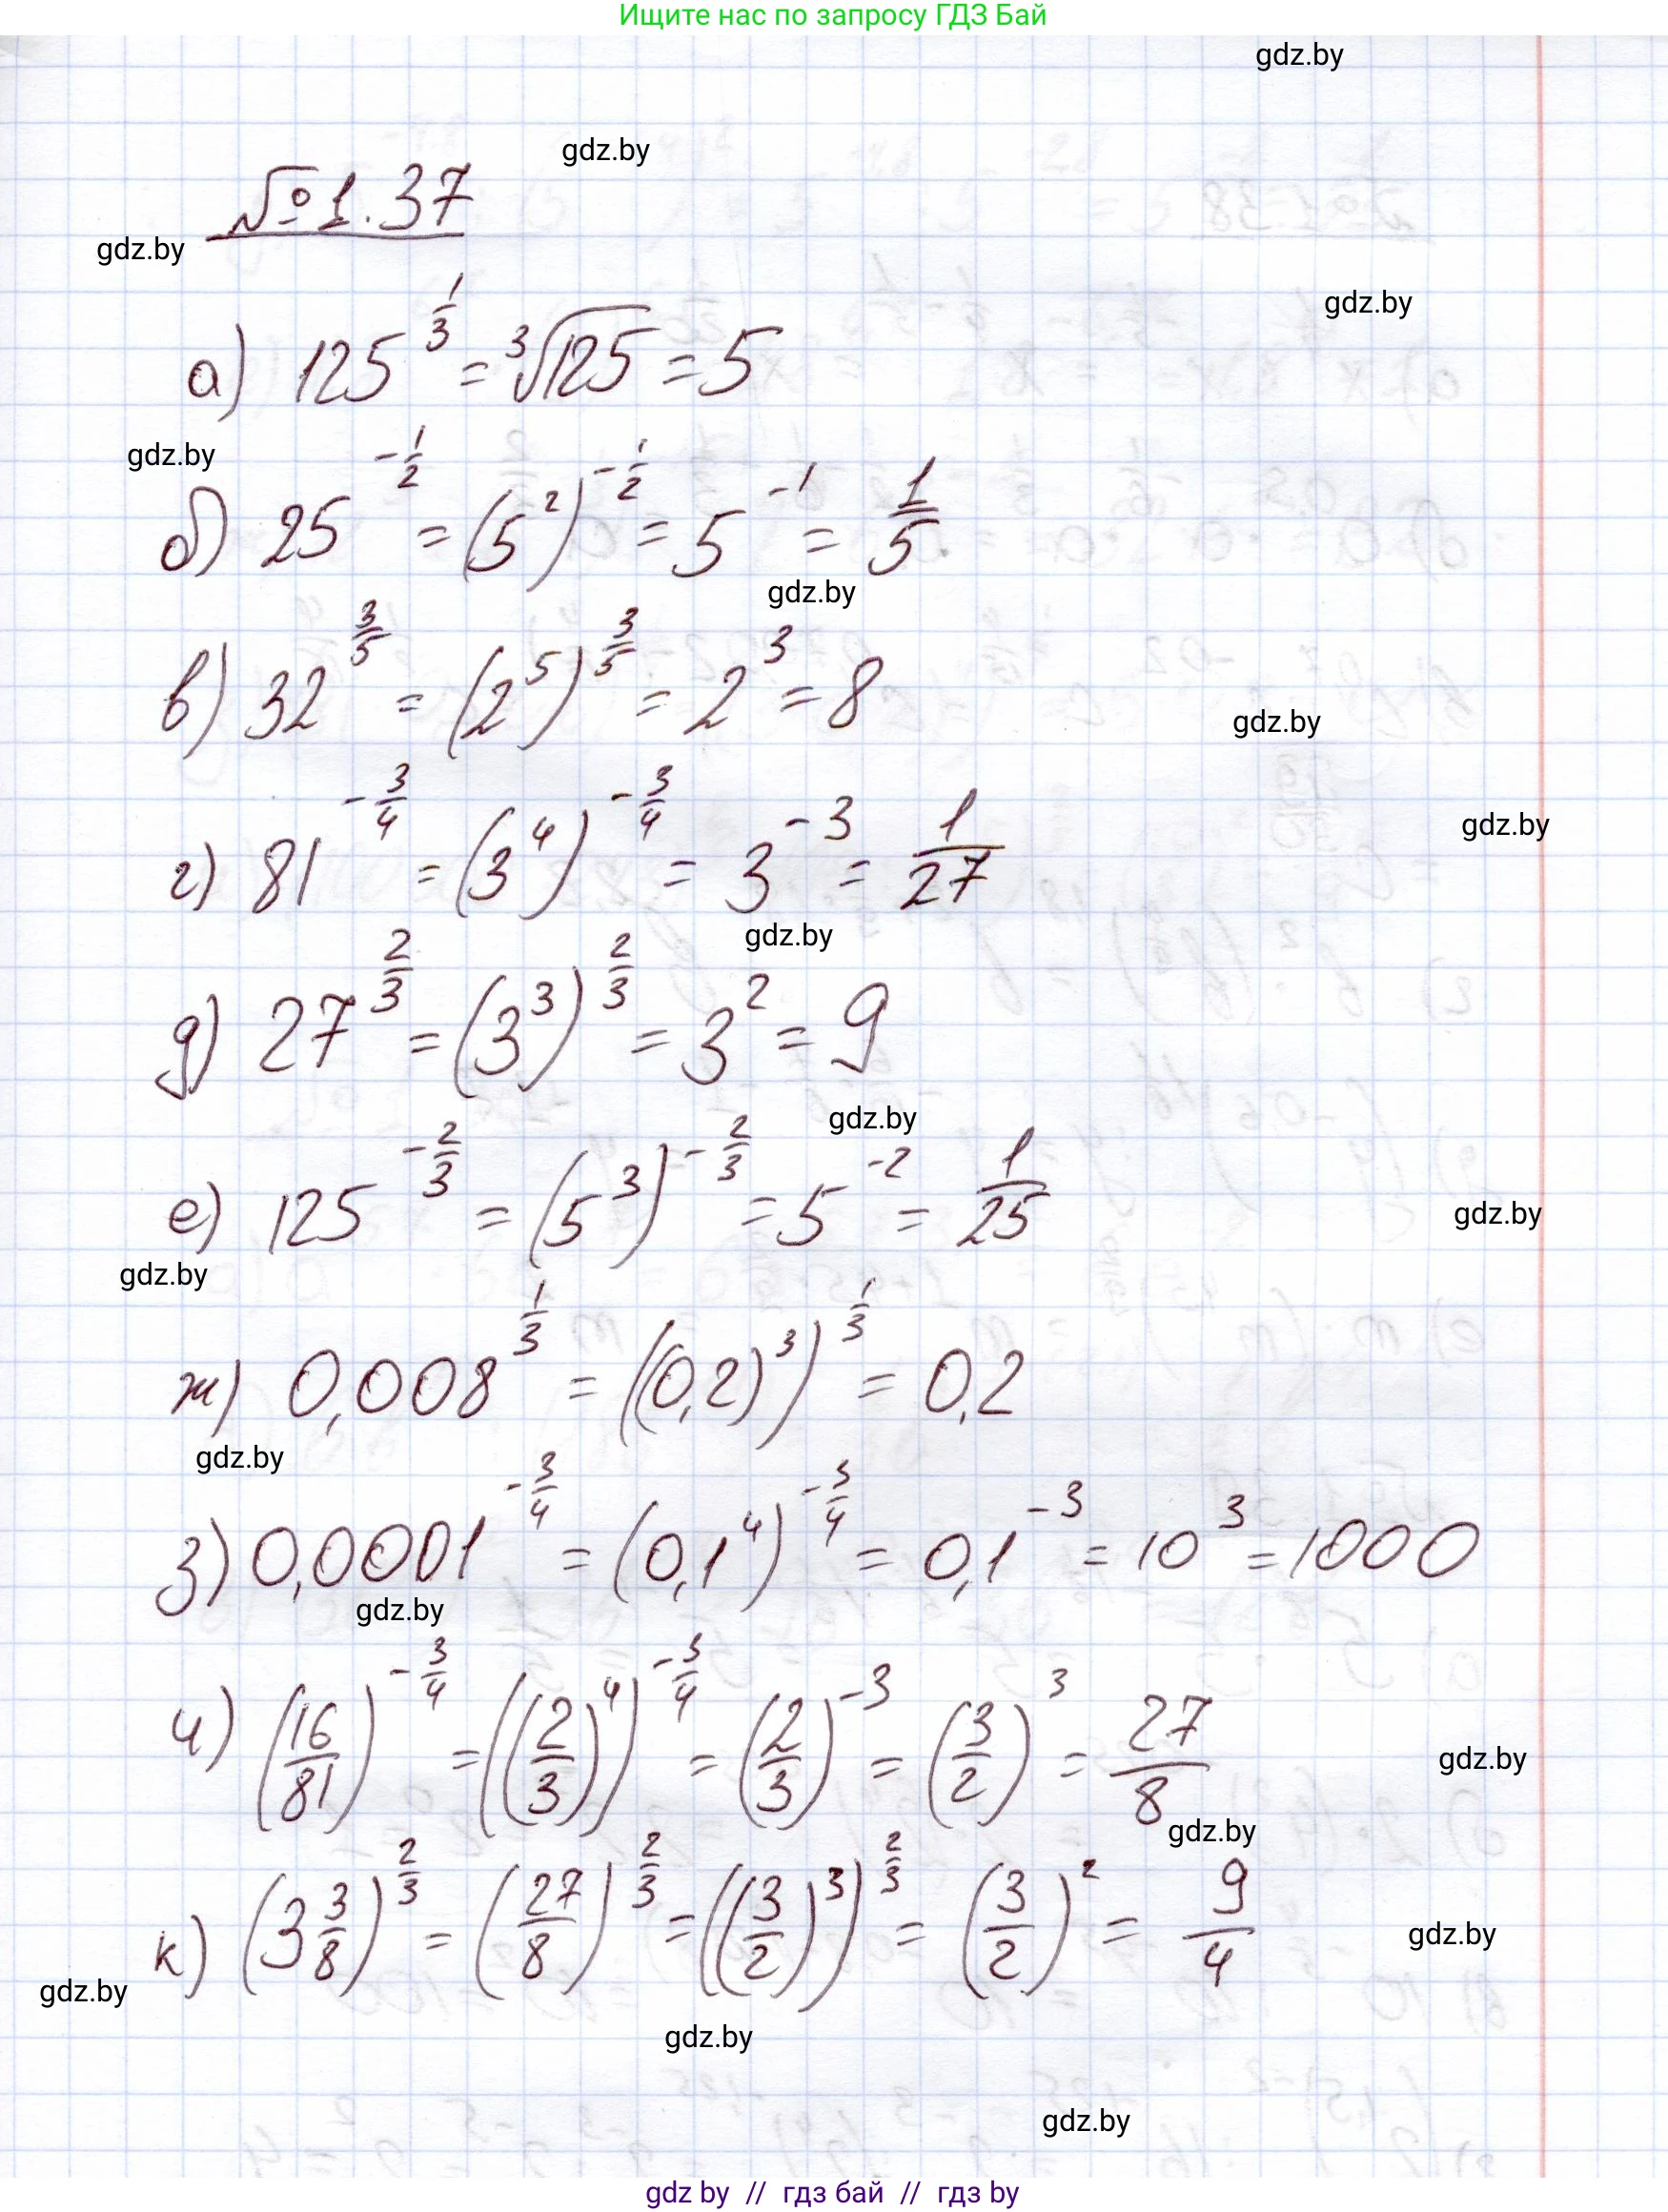 Ищите нас по запросу ГДЗ Бай
gdz.by
gdz.by
№1.37
gdz.by
gdz.by
а) 125^(1/3) = ∛125 = 5
gdz.by
б) 25^(-1/2) = (5^2)^(-1/2) = 5^(-1) = 1/5
gdz.by
в) 32^(3/5) = (2^5)^(3/5) = 2^3 = 8
gdz.by
г) 81^(-3/4) = (3^4)^(-3/4) = 3^(-3) = 1/27
gdz.by
gdz.by
д) 27^(2/3) = (3^3)^(2/3) = 3^2 = 9
gdz.by
е) 125^(-2/3) = (5^3)^(-2/3) = 5^(-2) = 1/25
gdz.by
gdz.by
ж) 0,008^(1/3) = ((0,2)^3)^(1/3) = 0,2
gdz.by
з) 0,0001^(-3/4) = (0,1^4)^(-3/4) = 0,1^(-3) = 10^3 = 1000
gdz.by
и) (16/81)^(-3/4) = ((2/3)^4)^(-3/4) = (2/3)^(-3) = (3/2)^3 = 27/8
gdz.by
gdz.by
к) (3 3/8)^(2/3) = (27/8)^(2/3) = ((3/2)^3)^(2/3) = (3/2)^2 = 9/4
gdz.by
gdz.by
gdz.by
gdz.by
gdz by // гдз бай // гдз by